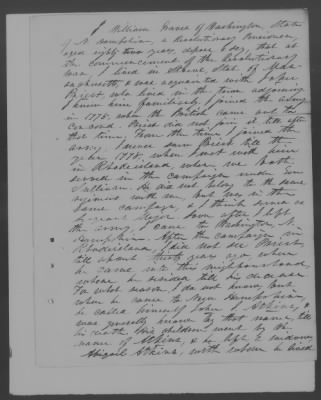 I William Graves of Washington State
of N. Hampshire, a Revolutionary Pensioner,
aged eighty two years, depose & say, that at
the commencement of the Revolutionary
War, I lived in State of Mas-
sachusetts, & was acquainted with
Priest, who lived in the town adjoining
I knew him familiarly. I joined the army
in 1775, when the British came out to
Concord. Priest did not join it till after
that time. From the time I joined the
army, I never saw Priest till the
year 1778, when I met with him
in Rhodeisland, where we both
served in the campaign under Gen
Sullivan. He did not belong to the same
regiment with me, but was in the
same campaign, & I think served as
Sergeant Major. Soon after I left
the army, I came to Washington, N.
Hampshire. After the campaign in
Rhodeisland, I did not see Priest
till about thirty years ago when
he came into this neighbourhood
where he resided till his decease
For what reason I do not know, but
when he came to New Hampshire,
he called himself John Atkins, &
was generally known by that name, till
his death. His children went by the
name of Atkins, & he left a widow,
Abigail Atkins, with whom he lived